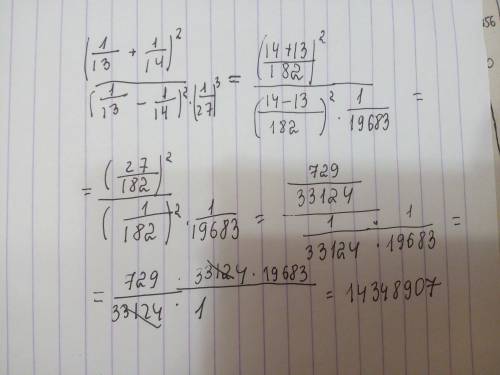 (1/13 + 1/14)² / ((1/13 - 1/14)² · (1/27)³) = ((14+13)/182)² / (((14-13)/182)² · 1/19683) =
= (27/182)² / ((1/182)² · 1/19683) = (729/33124) / (1/33124 · 1/19683) =
= (729 · 33124 · 19683) / (33124 · 1) = 14348907